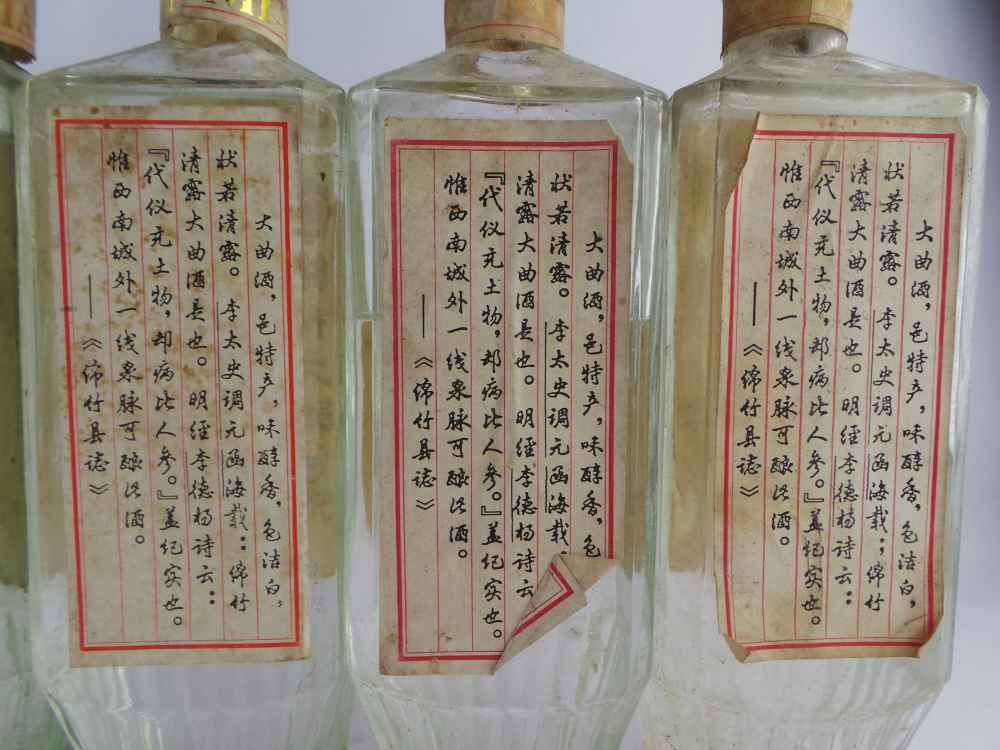 大曲酒，邑特产，味醇香，色洁白，
状若清露。李太史调元函海载：绵竹
清露大曲酒是也。明经李德杨诗云：
『代仪充土物，却病比人参。』盖纪实也。
惟西南城外一线泉脉可酿此酒。
——《绵竹县誌》
大曲酒，邑特产，味醇香，色
状若清露。李太史调元函海载：
清露大曲酒是也。明经李德杨诗云
『代仪充土物，却病比人参。』盖纪实也。
惟西南城外一线泉脉可酿此酒。
——《绵竹县誌》
大曲酒，邑特产，味醇香，色洁白，
状若清露。李太史调元函海载：绵竹
清露大曲酒是也。明经李德杨诗云：
『代仪充土物，却病比人参。』盖纪实也。
惟西南城外一线泉脉可酿此酒。
——《绵竹县誌》